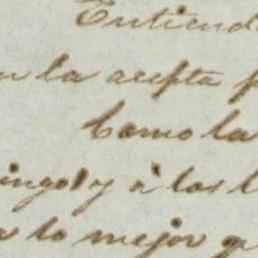 Entiend
n la acepta p
Como la
ingo y á las l
a lo mejor q